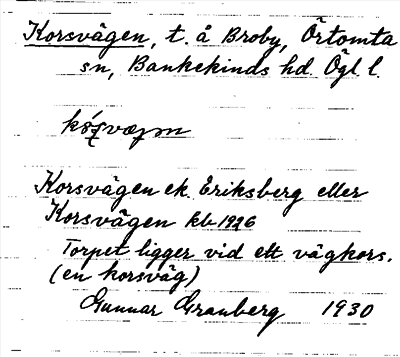 Korsvägen, t. å Broby, Örtomta
sn, Bankekinds hd. Ögl l.
Korsvägen ek. Eriksberg eller
Korsvägen kb 1926
Torpet ligger vid ett vägkors.
(en korsväg)
Gunnar Granberg 1930